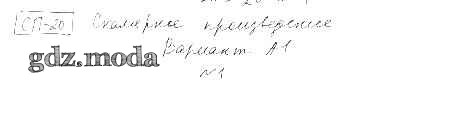 СП-20 Скалярное произведение
Вариант А1
gdz.moda
№1